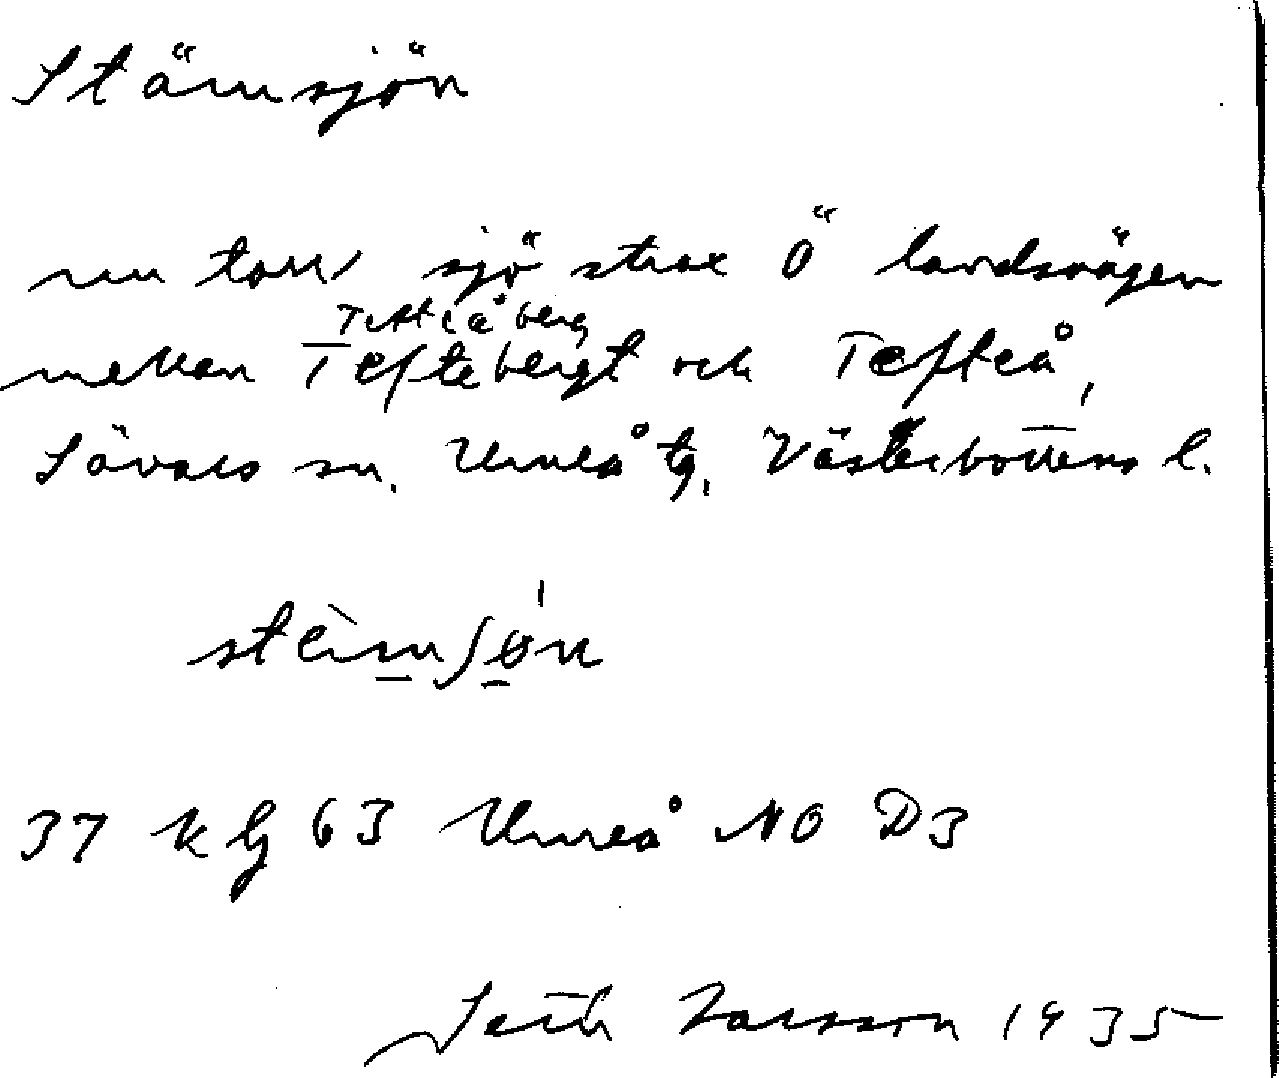 Stämsjön
nu torr sjö strax Ö landsvägen
Tefteåberg
mellan Teftebergt och Tefteå,
Sävars sn. Umeå tg. Västerbottens l.
stèmʃøn
37 kg 63 Umeå NO D3
Seth Larsson 1935